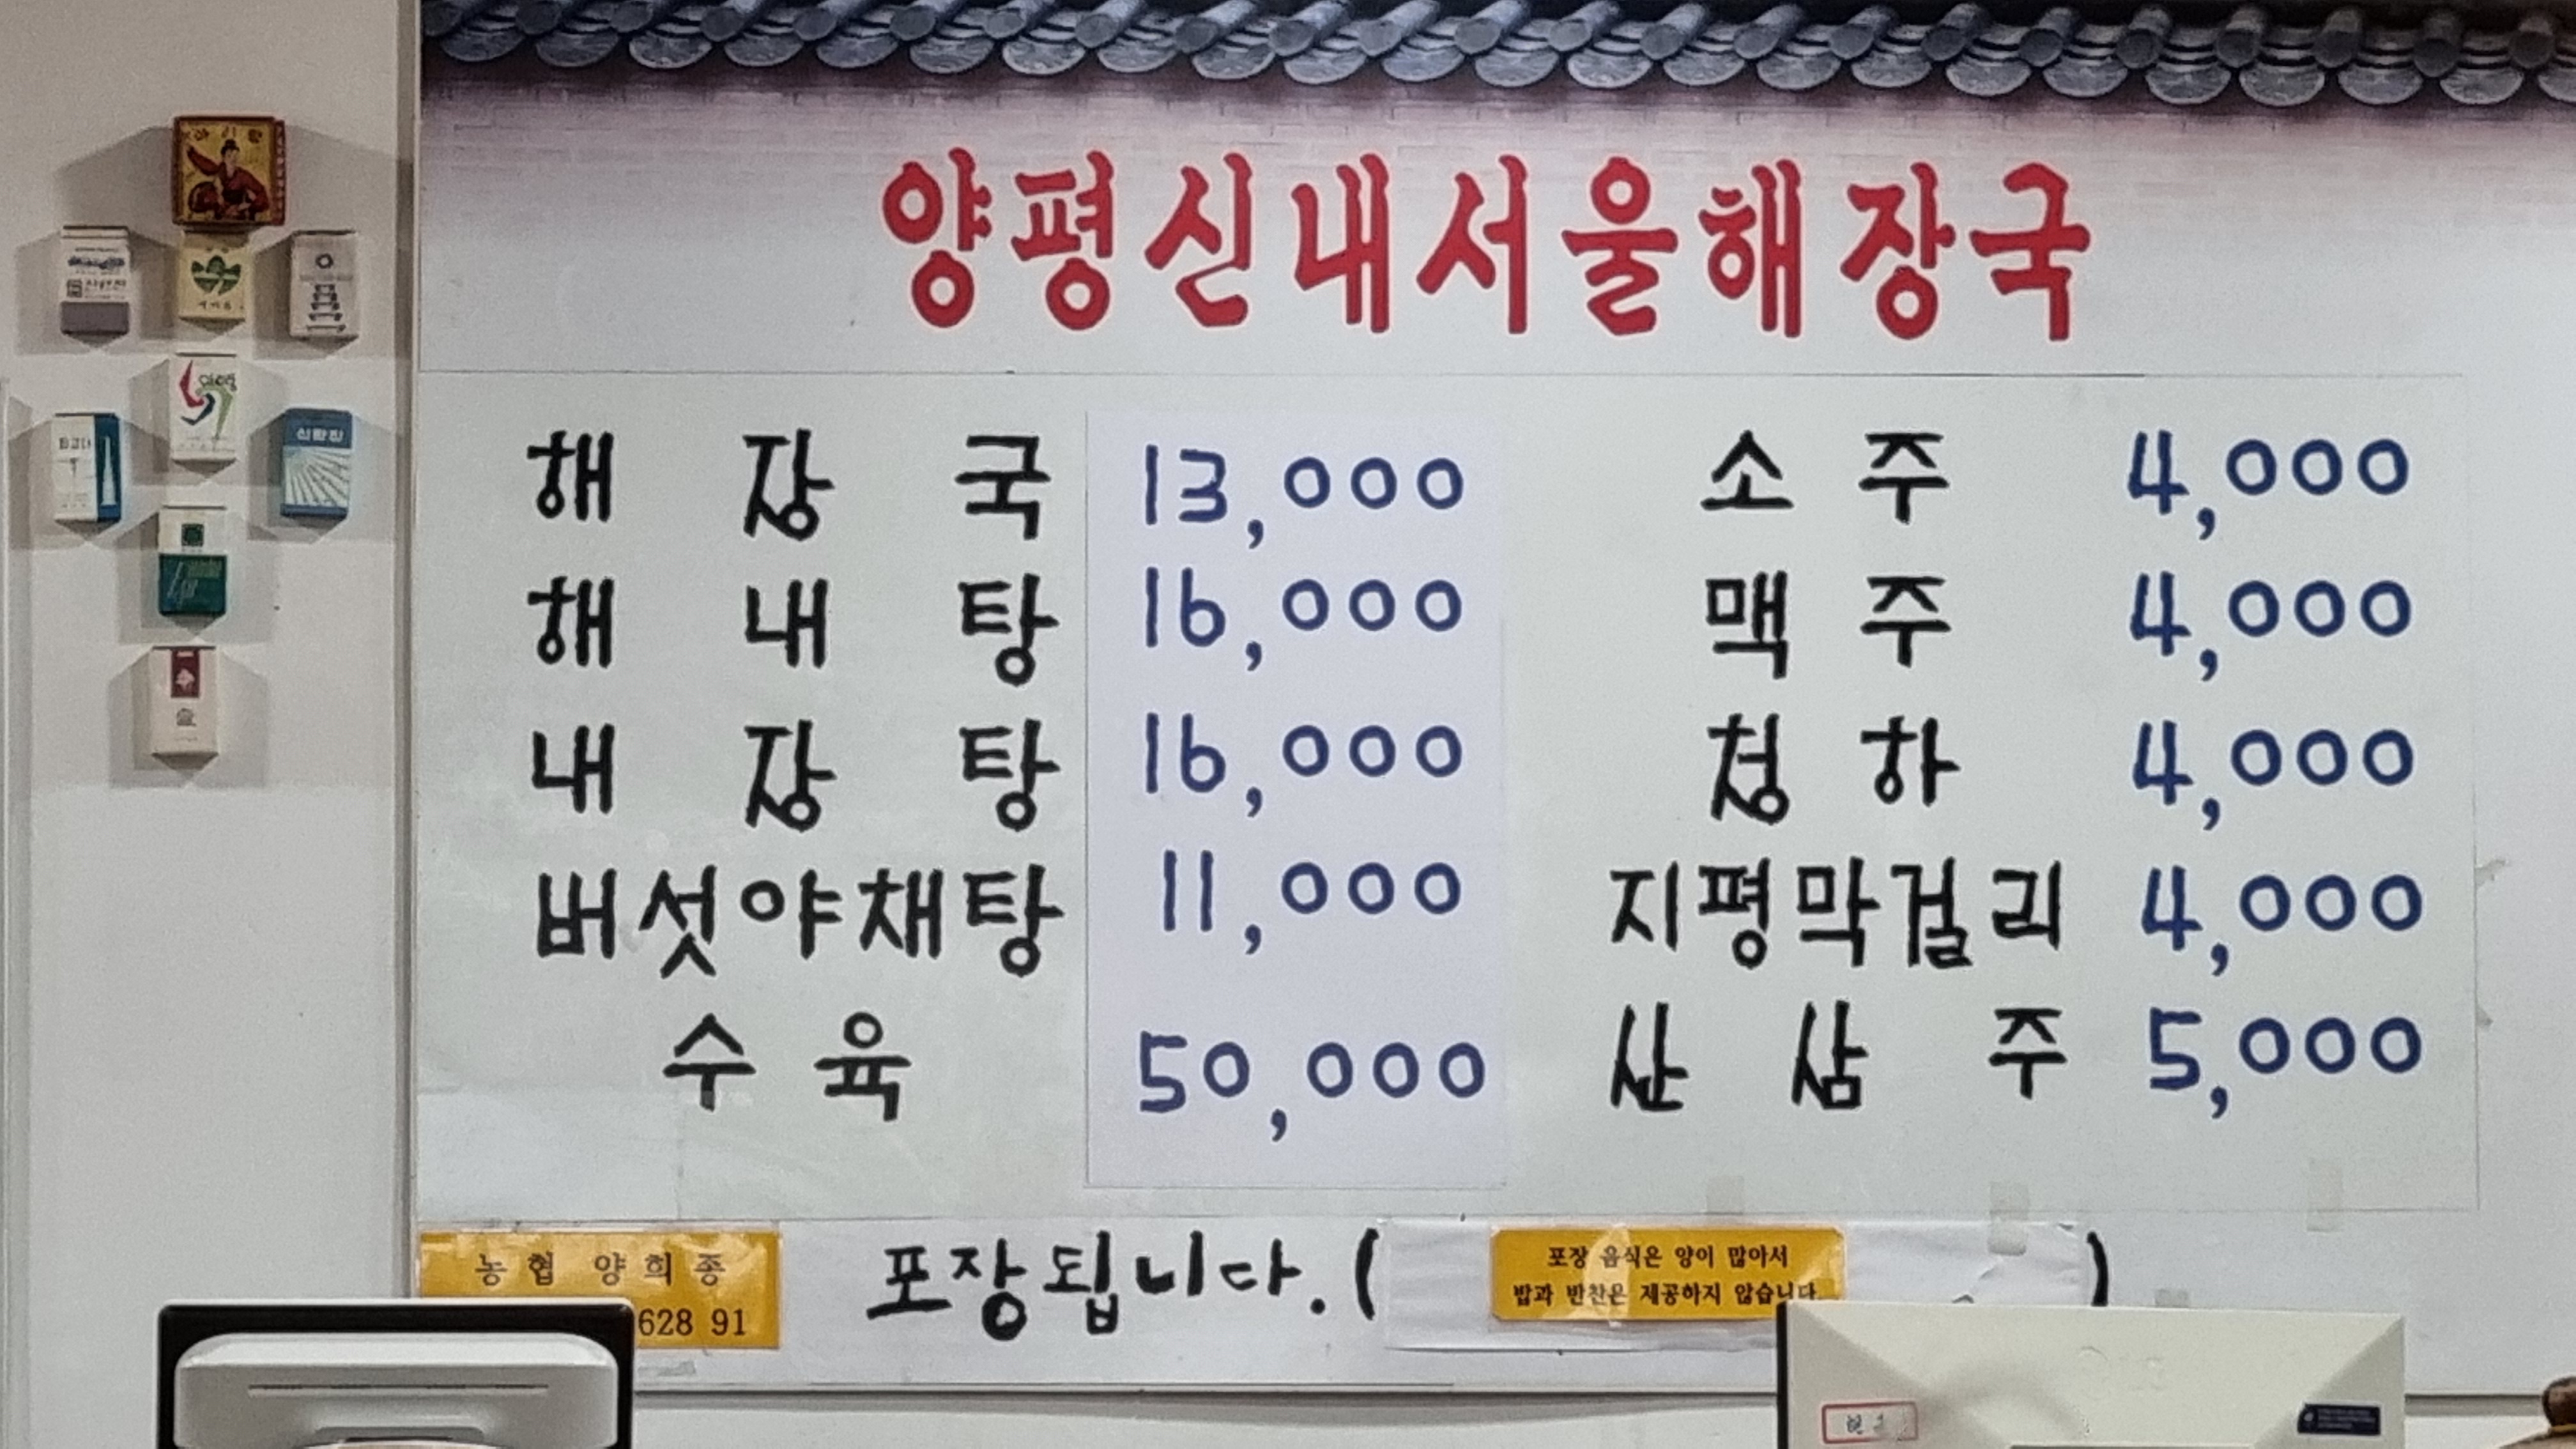 양평신내서울해장국
해장국 13,000
해내탕 16,000
내장탕 16,000
버섯야채탕 11,000
수육 50,000
소주 4,000
맥주 4,000
청하 4,000
지평막걸리 4,000
산삼주 5,000
농협 양희종
628 91
포장됩니다. (포장 음식은 양이 많아서
밥과 반찬은 제공하지 않습니다.)
아리랑
신탄진